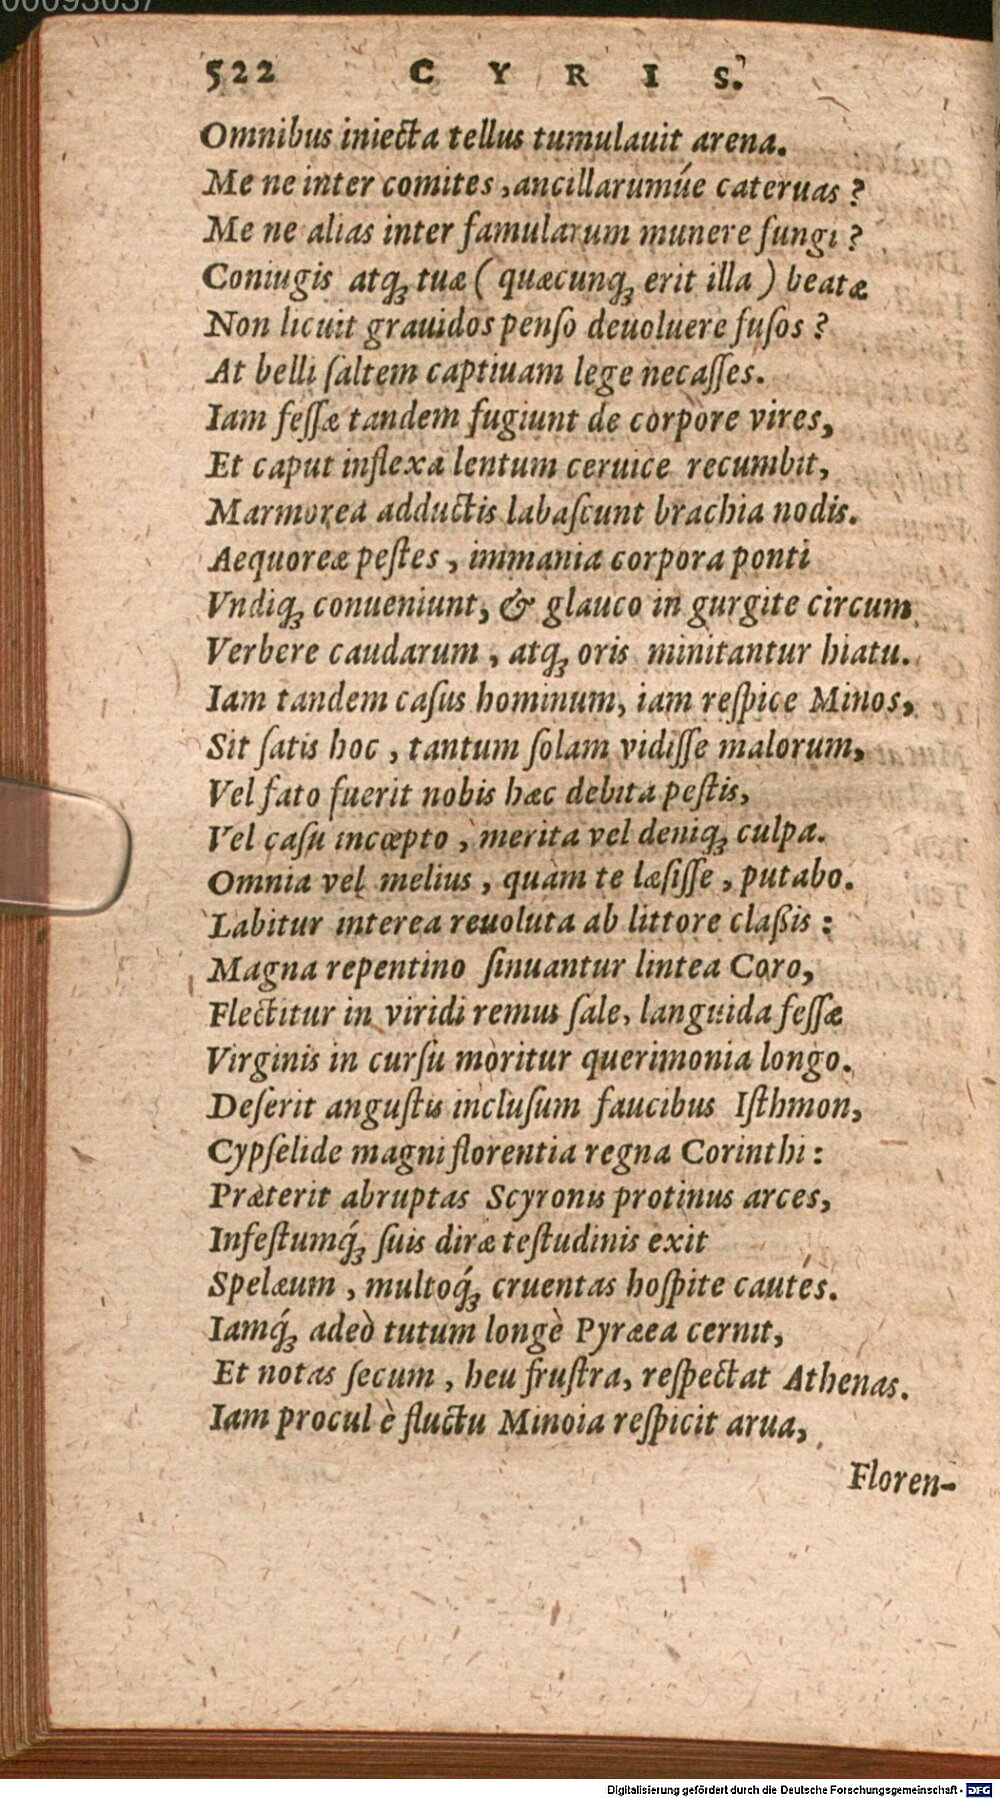 522 CYRIS.
Omnibus iniecta tellus tumulauit arena.
Me ne inter comites, ancillarumúe cateruas?
Me ne alias inter famularum munere fungi?
Coniugis atqꝫ tuæ (quæcunqꝫ erit illa) beatæ
Non licuit grauidos penſo deuoluere fuſos?
At belli ſaltem captiuam lege necaſſes.
Iam feſſæ tandem fugiunt de corpore vires,
Et caput inflexa lentum ceruice recumbit,
Marmorea adductis labaſcunt brachia nodis.
Aequoreæ peſtes, immania corpora ponti
Vndiqꝫ conueniunt, & glauco in gurgite circum
Verbere caudarum, atqꝫ oris minitantur hiatu.
Iam tandem caſus hominum, iam reſpice Minos,
Sit ſatis hoc, tantum ſolam vidiſſe malorum,
Vel fato fuerit nobis hæc debita peſtis,
Vel caſu incœpto, merita vel deniqꝫ culpa.
Omnia vel melius, quàm te læſiſſe, putabo.
Labitur interea reuoluta ab littore claßis:
Magna repentino ſinuantur lintea Coro,
Flectitur in viridi remus ſale, languida feſſæ
Virginis in curſu moritur querimonia longo.
Deſerit anguſtis incluſum faucibus Iſthmon,
Cypſelide magni florentia regna Corinthi:
Præterit abruptas Scyronis protinus arces,
Infeſtumq́ꝫ ſuis diræ teſtudinis exit
Spelæum, multoq́ꝫ cruentas hoſpite cautes.
Iamq́ꝫ adeò tutum longè Pyræea cernit,
Et notas ſecum, heu fruſtra, reſpectat Athenas.
Iam procul è fluctu Minoia reſpicit arua,
Floren-
Digitalisierung gefördert durch die Deutsche Forschungsgemeinschaft - DFG